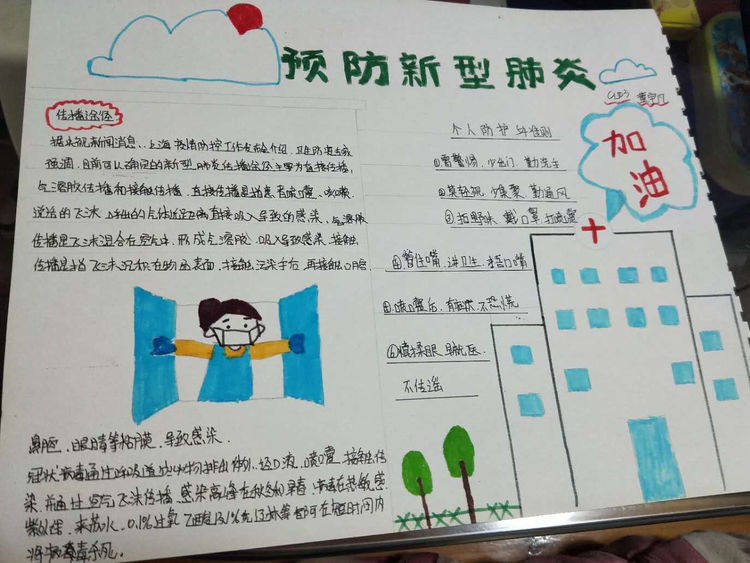 预防新型肺炎
加油
传播途径
据央视新闻消息,上海疫情防控工作发布会介绍,卫生防疫专家
强调,目前可以确定的新型肺炎传播途径主要为直接传播,
气溶胶传播和接触传播,直接传播是指患者喷嚏、咳嗽、
说话的飞沫,呼出的气体近距离直接吸入导致的感染,气溶胶
传播是飞沫混合在空气中,形成气溶胶,吸入导致感染,接触
传播是指飞沫沉积在物品表面,接触污染手后,再接触口腔、
鼻腔、眼睛等粘膜,导致感染.
冠状病毒通过呼吸道分泌物排出体外,经口液、喷嚏、接触传
染,并通过空气飞沫传播,感染高峰在秋冬和早春.病毒对热敏感,
紫外线、来苏水、0.1%过氧乙酸及1%克辽林等都可在短时间内
将病毒杀死.
个人防护 准则
①需警惕、少出门、勤洗手
②莫轻视、少集聚、勤通风
③拒野味、戴口罩、打喷嚏
④管住嘴、讲卫生、捂口嘴
⑤喷嚏后、有症状、不恐慌
⑥慎揉眼、早就医、
不传谣